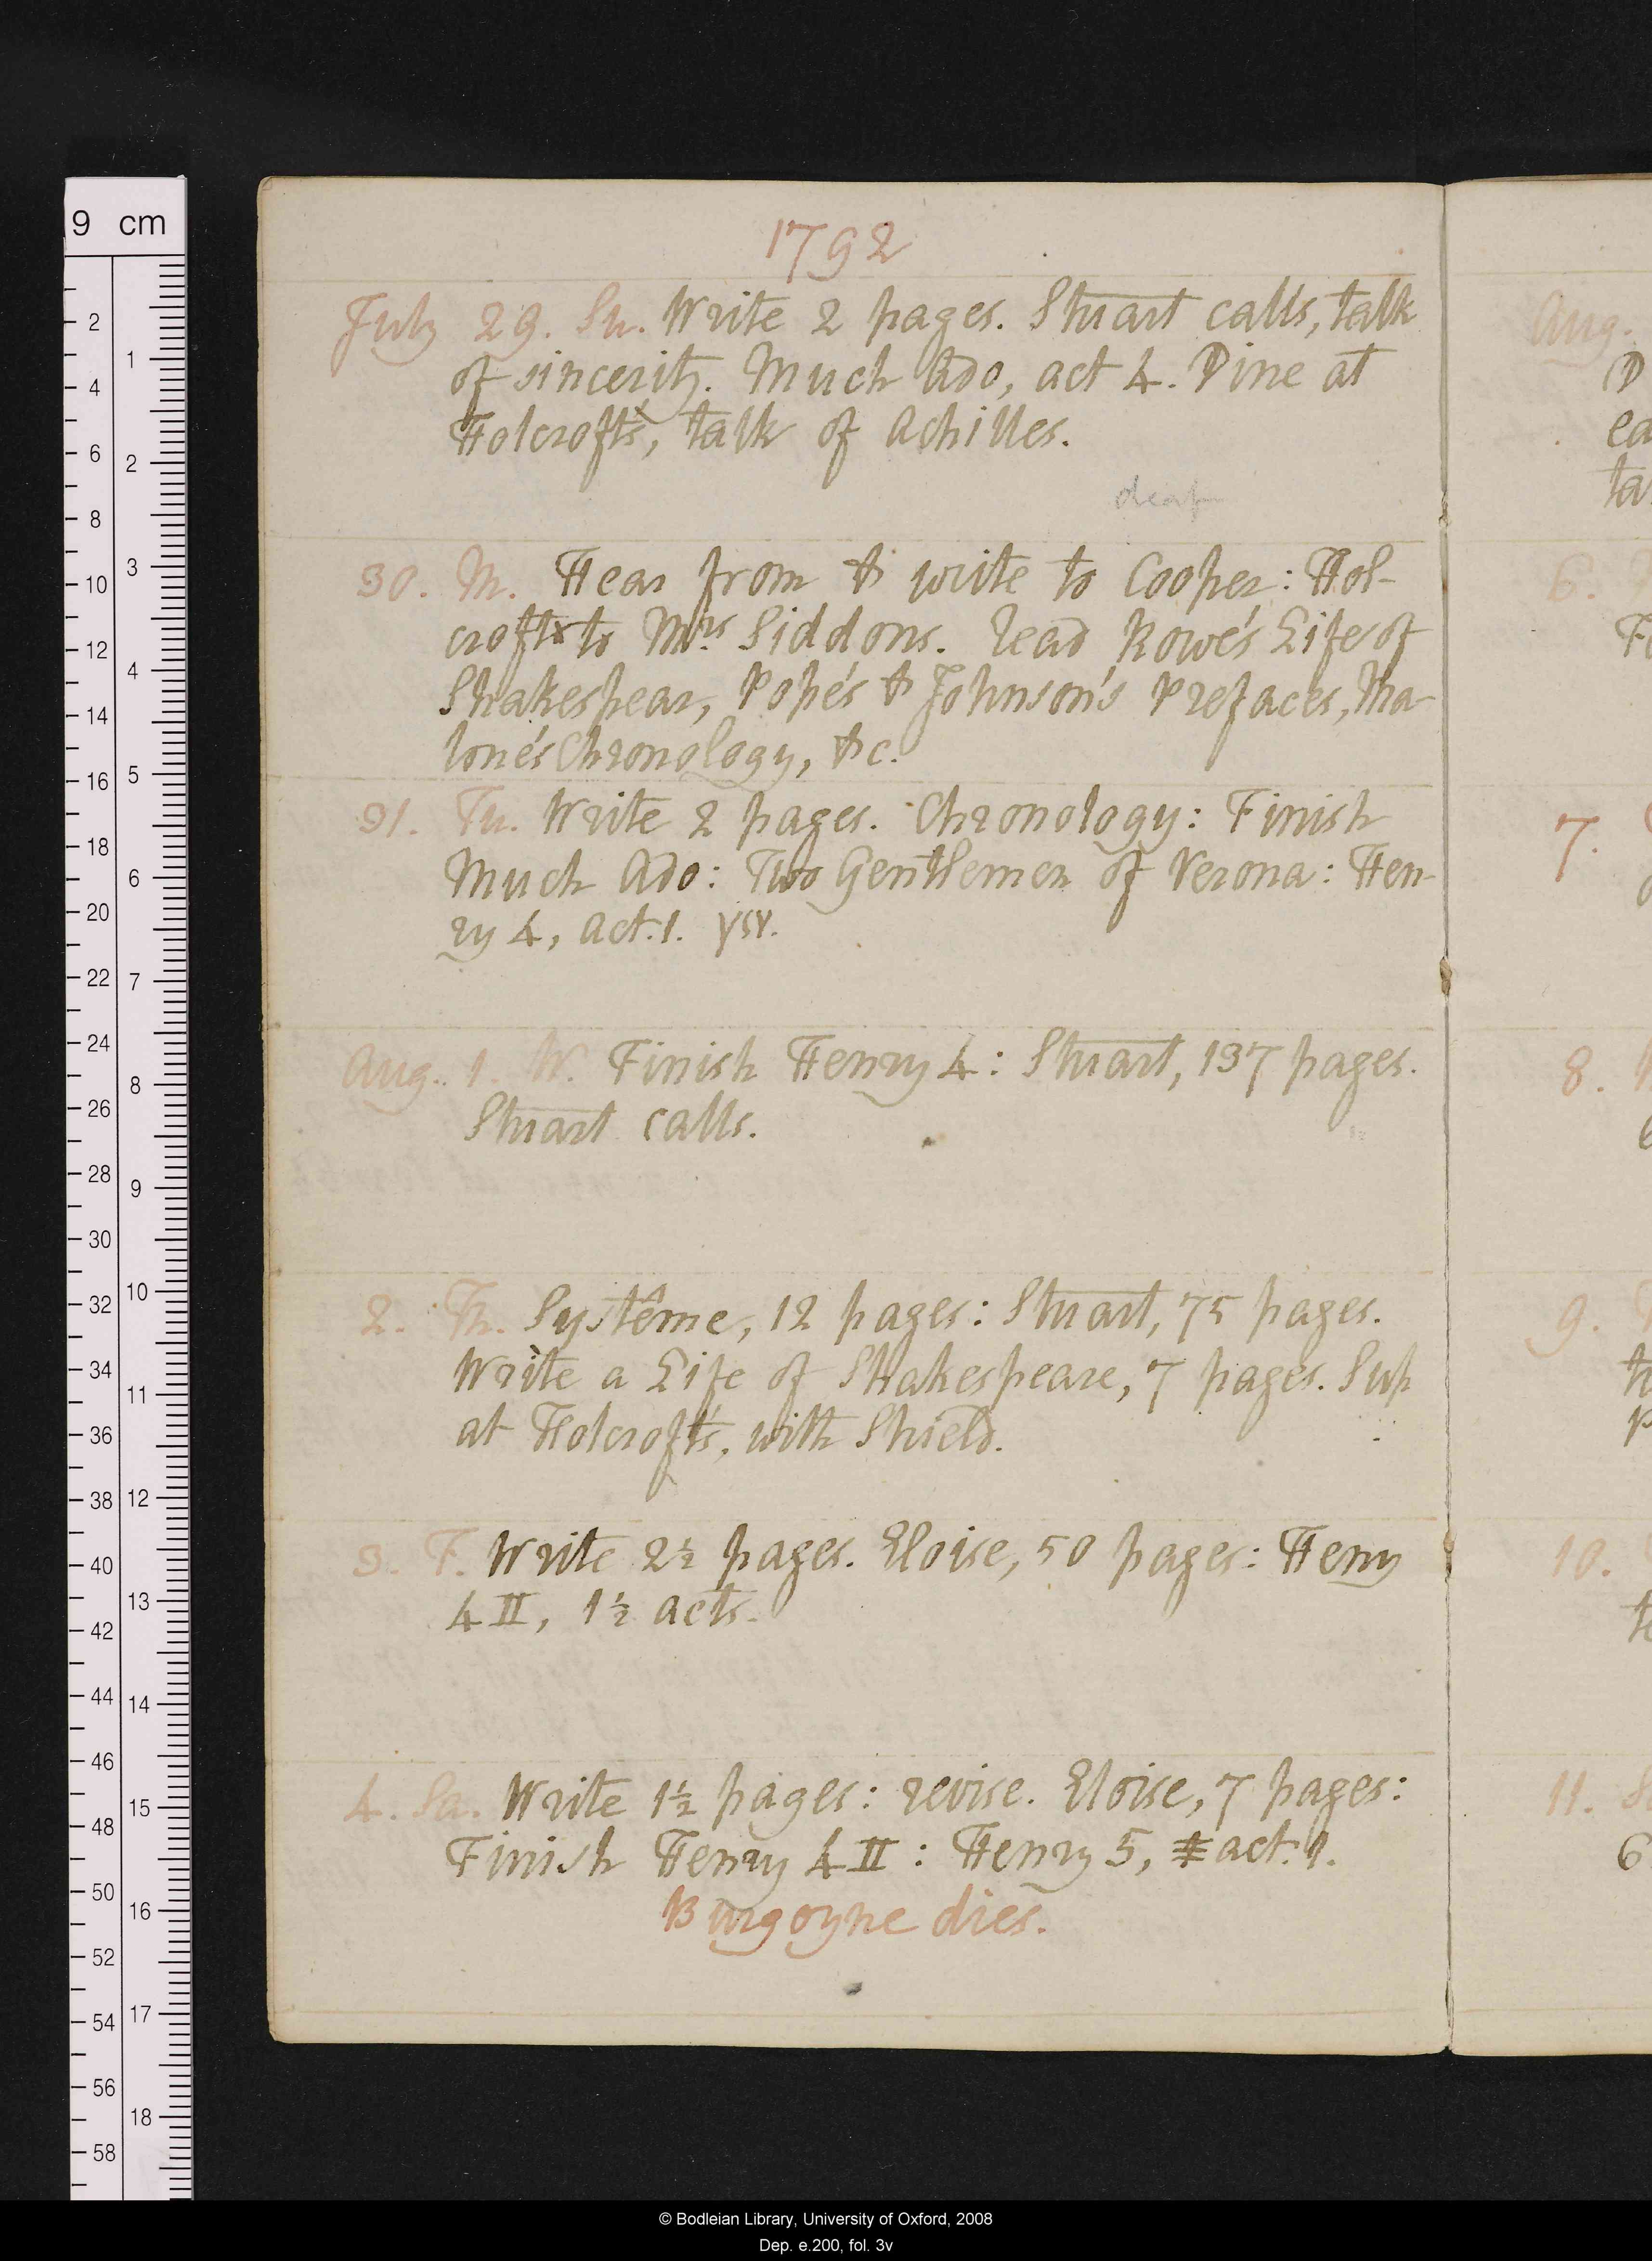 1792
July 29. Su. Write 2 pages. Stuart calls, talk
of sincerity. Much Ado, act 4. Dine at
Holcroft's, talk of Achilles.
deaf
30. M. Hear from & write to Cooper: Hol-
croft to Mrs Siddons. Read Rowe's Life of
Shakespear, Pope's & Johnson's Prefaces, Ma-
lone's Chronology, &c.
31. Tu. Write 2 pages. Chronology: Finish
Much Ado: Two Gentlemen of Verona: Hen-
ry 4, act. 1.
Aug. 1. W. Finish Henry 4: Stuart, 137 pages.
Stuart calls.
2. Th. Systême, 12 pages: Stuart, 75 pages.
Write a Life of Shakespeare, 7 pages. Sup
at Holcroft's, with Shield.
3. F. Write 2½ pages. Eloise, 50 pages: Henry
4 II, 1½ acts.
4. Sa. Write 1½ pages: revise. Eloise, 7 pages:
Finish Henry 4 II: Henry 5, act. 1.
Burgoyne dies.
Aug.
D
ea
ta
6.
7.
8.
9.
to
10.
11.
6
9 cm
2
4
6
8
10
12
14
16
18
20
22
24
26
28
30
32
34
36
38
40
42
44
46
48
50
52
54
56
58
1
2
3
4
5
6
7
8
9
10
11
12
13
14
15
16
17
18
© Bodleian Library, University of Oxford, 2008
Dep. e.200, fol. 3v